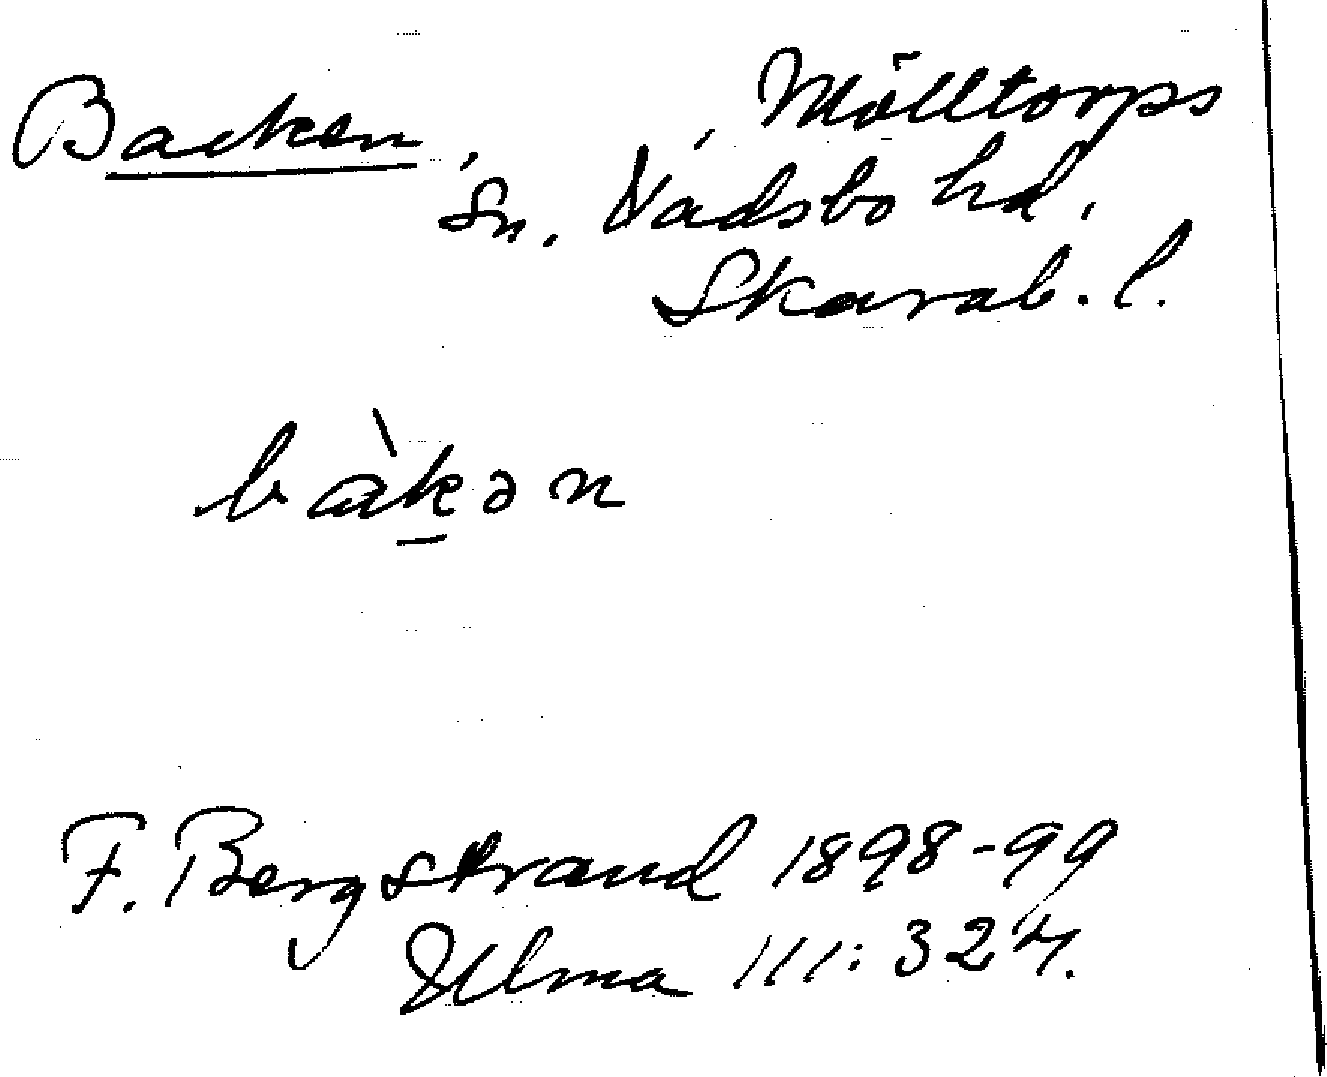 Backen, , Mölltorps
Sn. Vadsbo hd,
Skarab. l.
bàkən
F. Bergstrand 1898-99
Ulma 111:324.